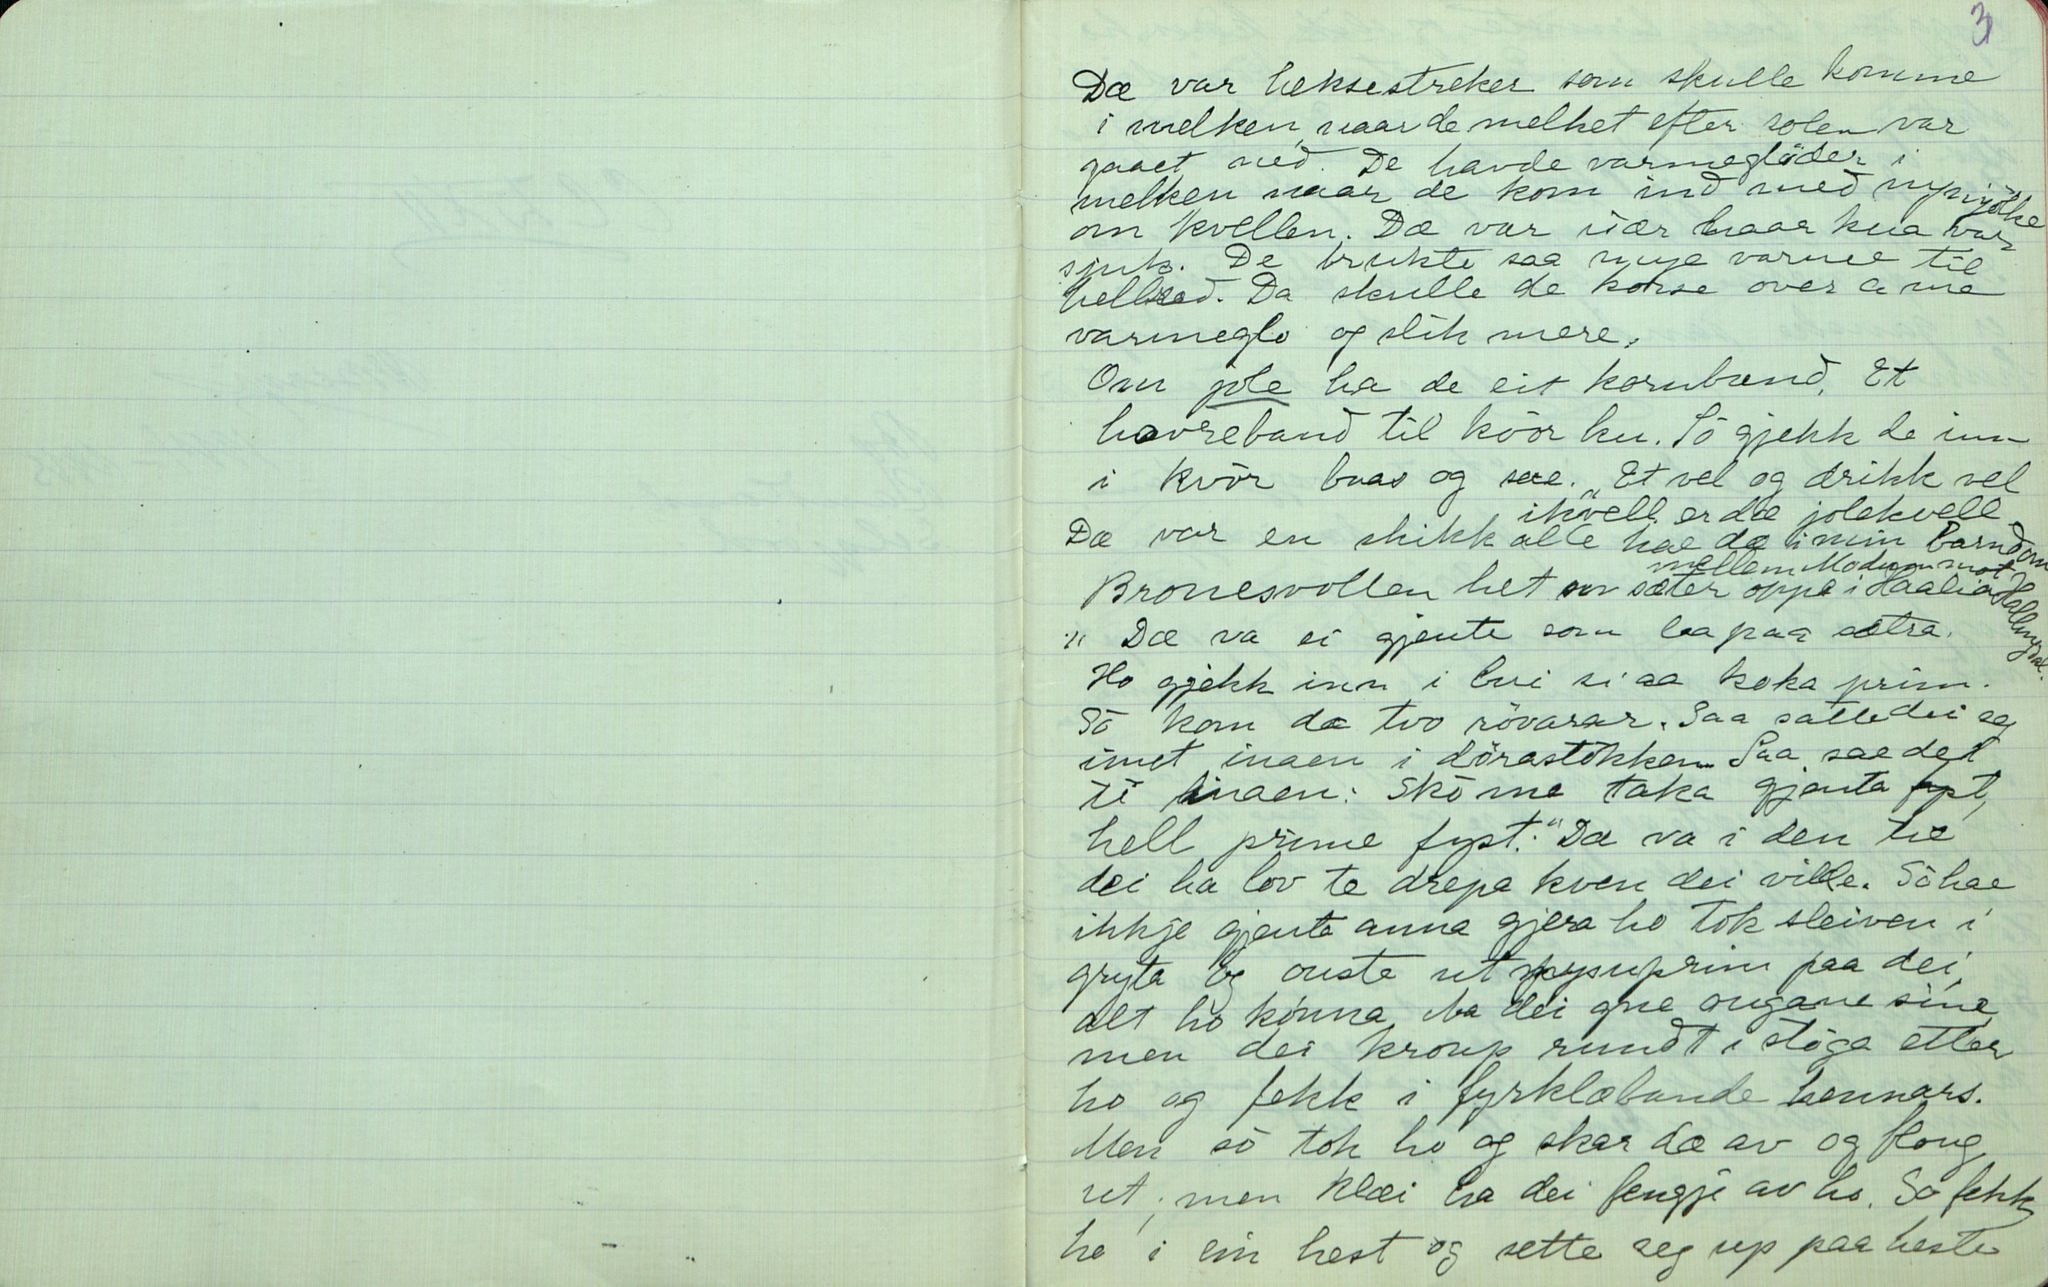 3
Dæ var heksestreker som skulle komme
i melken, naar de melket efter solen var
gaaet ned. De havde varmeglöder i
melken naar de kom ind med nymjölke
om kvellen. Dæ var især naar kua var
sjuk. De brukte saa mye varme til
hellraad. Da skulle de korse over a me
varmeglo og slik mere.
Om jole ha de eit kornband. Et
havreband til kvör ku. Sö gjekk de inn
i kvör baas og sae. "Et vel og drikk vel
ikvell er dæ jolekvell.
Dæ var en skikk alle hae dæ i min barndom
mellem Modum mot Hallingdal.
Bronesvollen het en sæter oppe i Haalia
" Dæ va ei gjente som laa paa sætra.
Ho gjekk inn i bui si aa koka prim.
Sö kom dæ tvo rövarar. Saa sætte dei seg
imot inaen i dörastökken. Saa sae dei
te hinaen: Skö me taka gjenta fyst,
hell prime fyst." Dæ va i den tie
dei ha lov te drepa kven dei ville. Sö hae
ikkje gjenta anna gjera ho tok sleiven i
gryta og ouste ut paa dei
alt ho könna. Va dei gne ougane sine,
men dei kroup rundt i stöga etter
ho og fekk i fyrklæbande hennars.
Men sö tok ho og skar dæ av og floug
ut, men klæi ha dei fengje av ho. Sö fekk
ho i ein hest og sette seg up paa heste